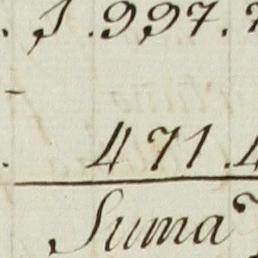 . 1.997.7
-
. 471.4
Suma